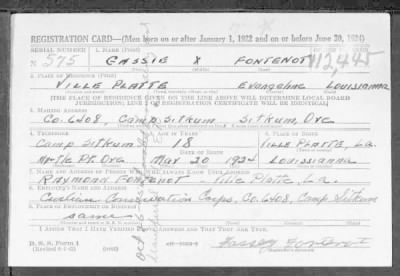 REGISTRATION CARD—(Men born on or after January 1, 1922 and on or before June 30, 1924)
SERIAL NUMBER 1. NAME (Print)
N 575 GASSIE X FONTENOT 12445
2. PLACE OF RESIDENCE (Print)
VILLE PLATTE Evangeline Louisianna
[THE PLACE OF RESIDENCE GIVEN ON THE LINE ABOVE WILL DETERMINE LOCAL BOARD
JURISDICTION; LINE 2 OF REGISTRATION CERTIFICATE WILL BE IDENTICAL]
3. MAILING ADDRESS
Co. 6408, Camp Sitkum Sitkum, Ore
4. TELEPHONE 5. AGE IN YEARS 6. PLACE OF BIRTH
Camp Sitkum 18 Ville Platte, La.
DATE OF BIRTH
Myrtle Pt. Ore Mar 20 1924 Louisianna
7. NAME AND ADDRESS OF PERSON WHO WILL ALWAYS KNOW YOUR ADDRESS
Raymond Fontenot - Ville Platte, La.
8. EMPLOYER'S NAME AND ADDRESS
Civilian Conservation Corps, Co. 6408, Camp Sitkum
9. PLACE OF EMPLOYMENT OR BUSINESS
same
I AFFIRM THAT I HAVE VERIFIED ABOVE ANSWERS AND THAT THEY ARE TRUE.
D. S. S. Form 1
Gassey Fontenot